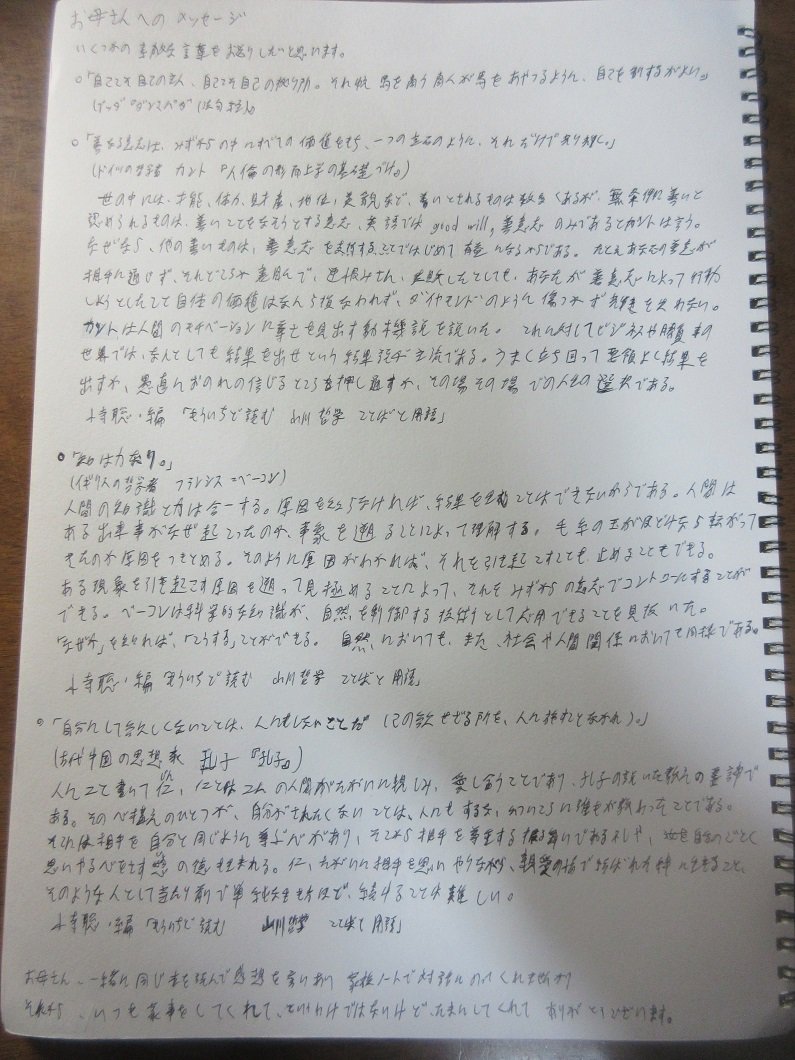 お母さんへのメッセージ
いくつかの素敵な言葉をお送りしたいと思います。
○「自己こそ自己の主人、自己こそ自己の拠り所。それ故 馬を商う商人が馬をあやつるように、自己を制するがよい。」
(ブッダ『ダンマパダ(法句経)』)
○「善なる意志は、みずからの中にすべての価値をもち、一つの宝石のように、それだけで光り輝く。」
(ドイツの哲学者 カント 『人倫の形而上学の基礎づけ』)
世の中には、才能、体力、財産、地位、美貌など、善いとされるものは数多くあるが、無条件に善いと
認められるものは、善いことをなそうとする意志、英語では good will, 善意志のみであるとカントは言う。
なぜなら、他の善いものは、善意志を支付することではじめて有益になるからである。たとえあなたの善意が
相手に通じず、それどころか裏目に出て、逆恨みされ、失敗したとしても、あなたが善意志によって行動
しようとしたこと自体の価値はなんら損なわれず、ダイヤモンドのように傷つかず輝きを失わない。
カントは人間のモチベーションに尊さを見出す動機説を説いた。これに対してビジネスや勝負事の
世界では、なんとしても結果を出せという結果説が主流である。うまく立ち回って要領よく結果を
出すか、愚直におのれの信じるところを押し通すか、その場その場での人生の選択である。
小寺聡・編 「もういちど読む 山川 哲学 ことばと用語」
○「知は力なり。」
(イギリスの哲学者 フランシス=ベーコン)
人間の知識と力は合一する。原因を知らなければ、結果を生むことはできないからである。人間は
ある出来事がなぜ起こったのか、事象を遡ることによって理解する。毛糸の玉がほどけなら転がって
きたのか原因をつきとめる。そのように原因がわかれば、それを引き起こすことも、止めることもできる。
ある現象を引き起こす原因を遡って見極めることによって、それをみずからの意志でコントロールすることが
できる。ベーコンは科学的な知識が、自然を制御する技術として応用できることを見抜いた。
「なぜか」を知れば、「こうする」ことができる。自然においても、また、社会や人間関係においても同様である。
小寺聡・編 もういちど読む 山川哲学 ことばと用語」
○「自分にして欲しくないことは、人にもしないことだ (己の欲せざる所を、人に施すことなかれ)。」
(古代中国の思想家 孔子 『孔子』)
人に二と書いて仁、仁とは二人の人間がたがいに親しみ、愛し合うことであり、孔子の説いた教えの真諦で
ある。その心構えのひとつが、自分がされたくないことは、人にもするな、
それは相手を自分と同じように尊ぶ心があり、そこから相手を尊重する振る舞いである礼や、他を自分のごとく
思いやる心をさす恕の徳も生まれる。仁、たがいに相手を思いやりながら、親愛の情で結ばれた絆に生きること、
そのような人として当たり前で単純な生き方ほど、続けることは難しい。
小寺聡・編「もういちど読む 山川哲学 ことばと用語」
お母さん、一緒に同じ本を読んで感想を言いあう 家族ノートで対話にのってくれませんか
それから、いつも家事をしてくれて、というわけではないけど、たまにしてくれて ありがとうございます。